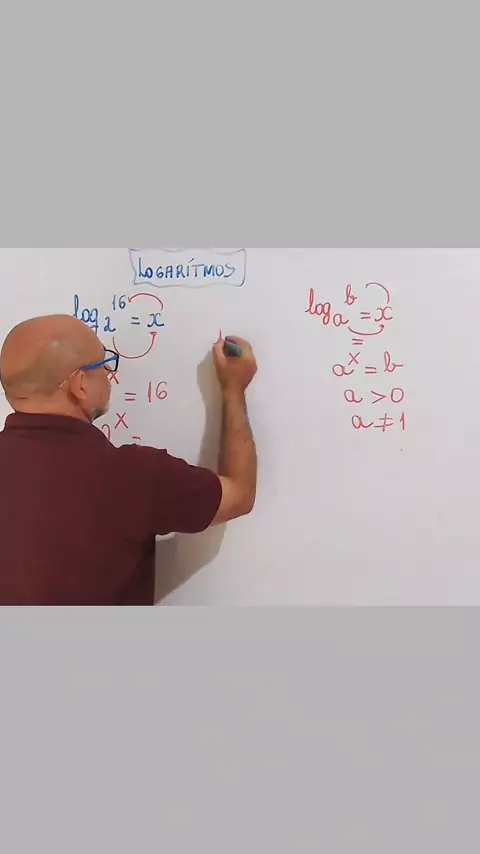 LOGARÍTMOS
log₂ 16 = x
x = 16
2ˣ =
logₐ b = x
=
aˣ = b
a > 0
a ≠ 1